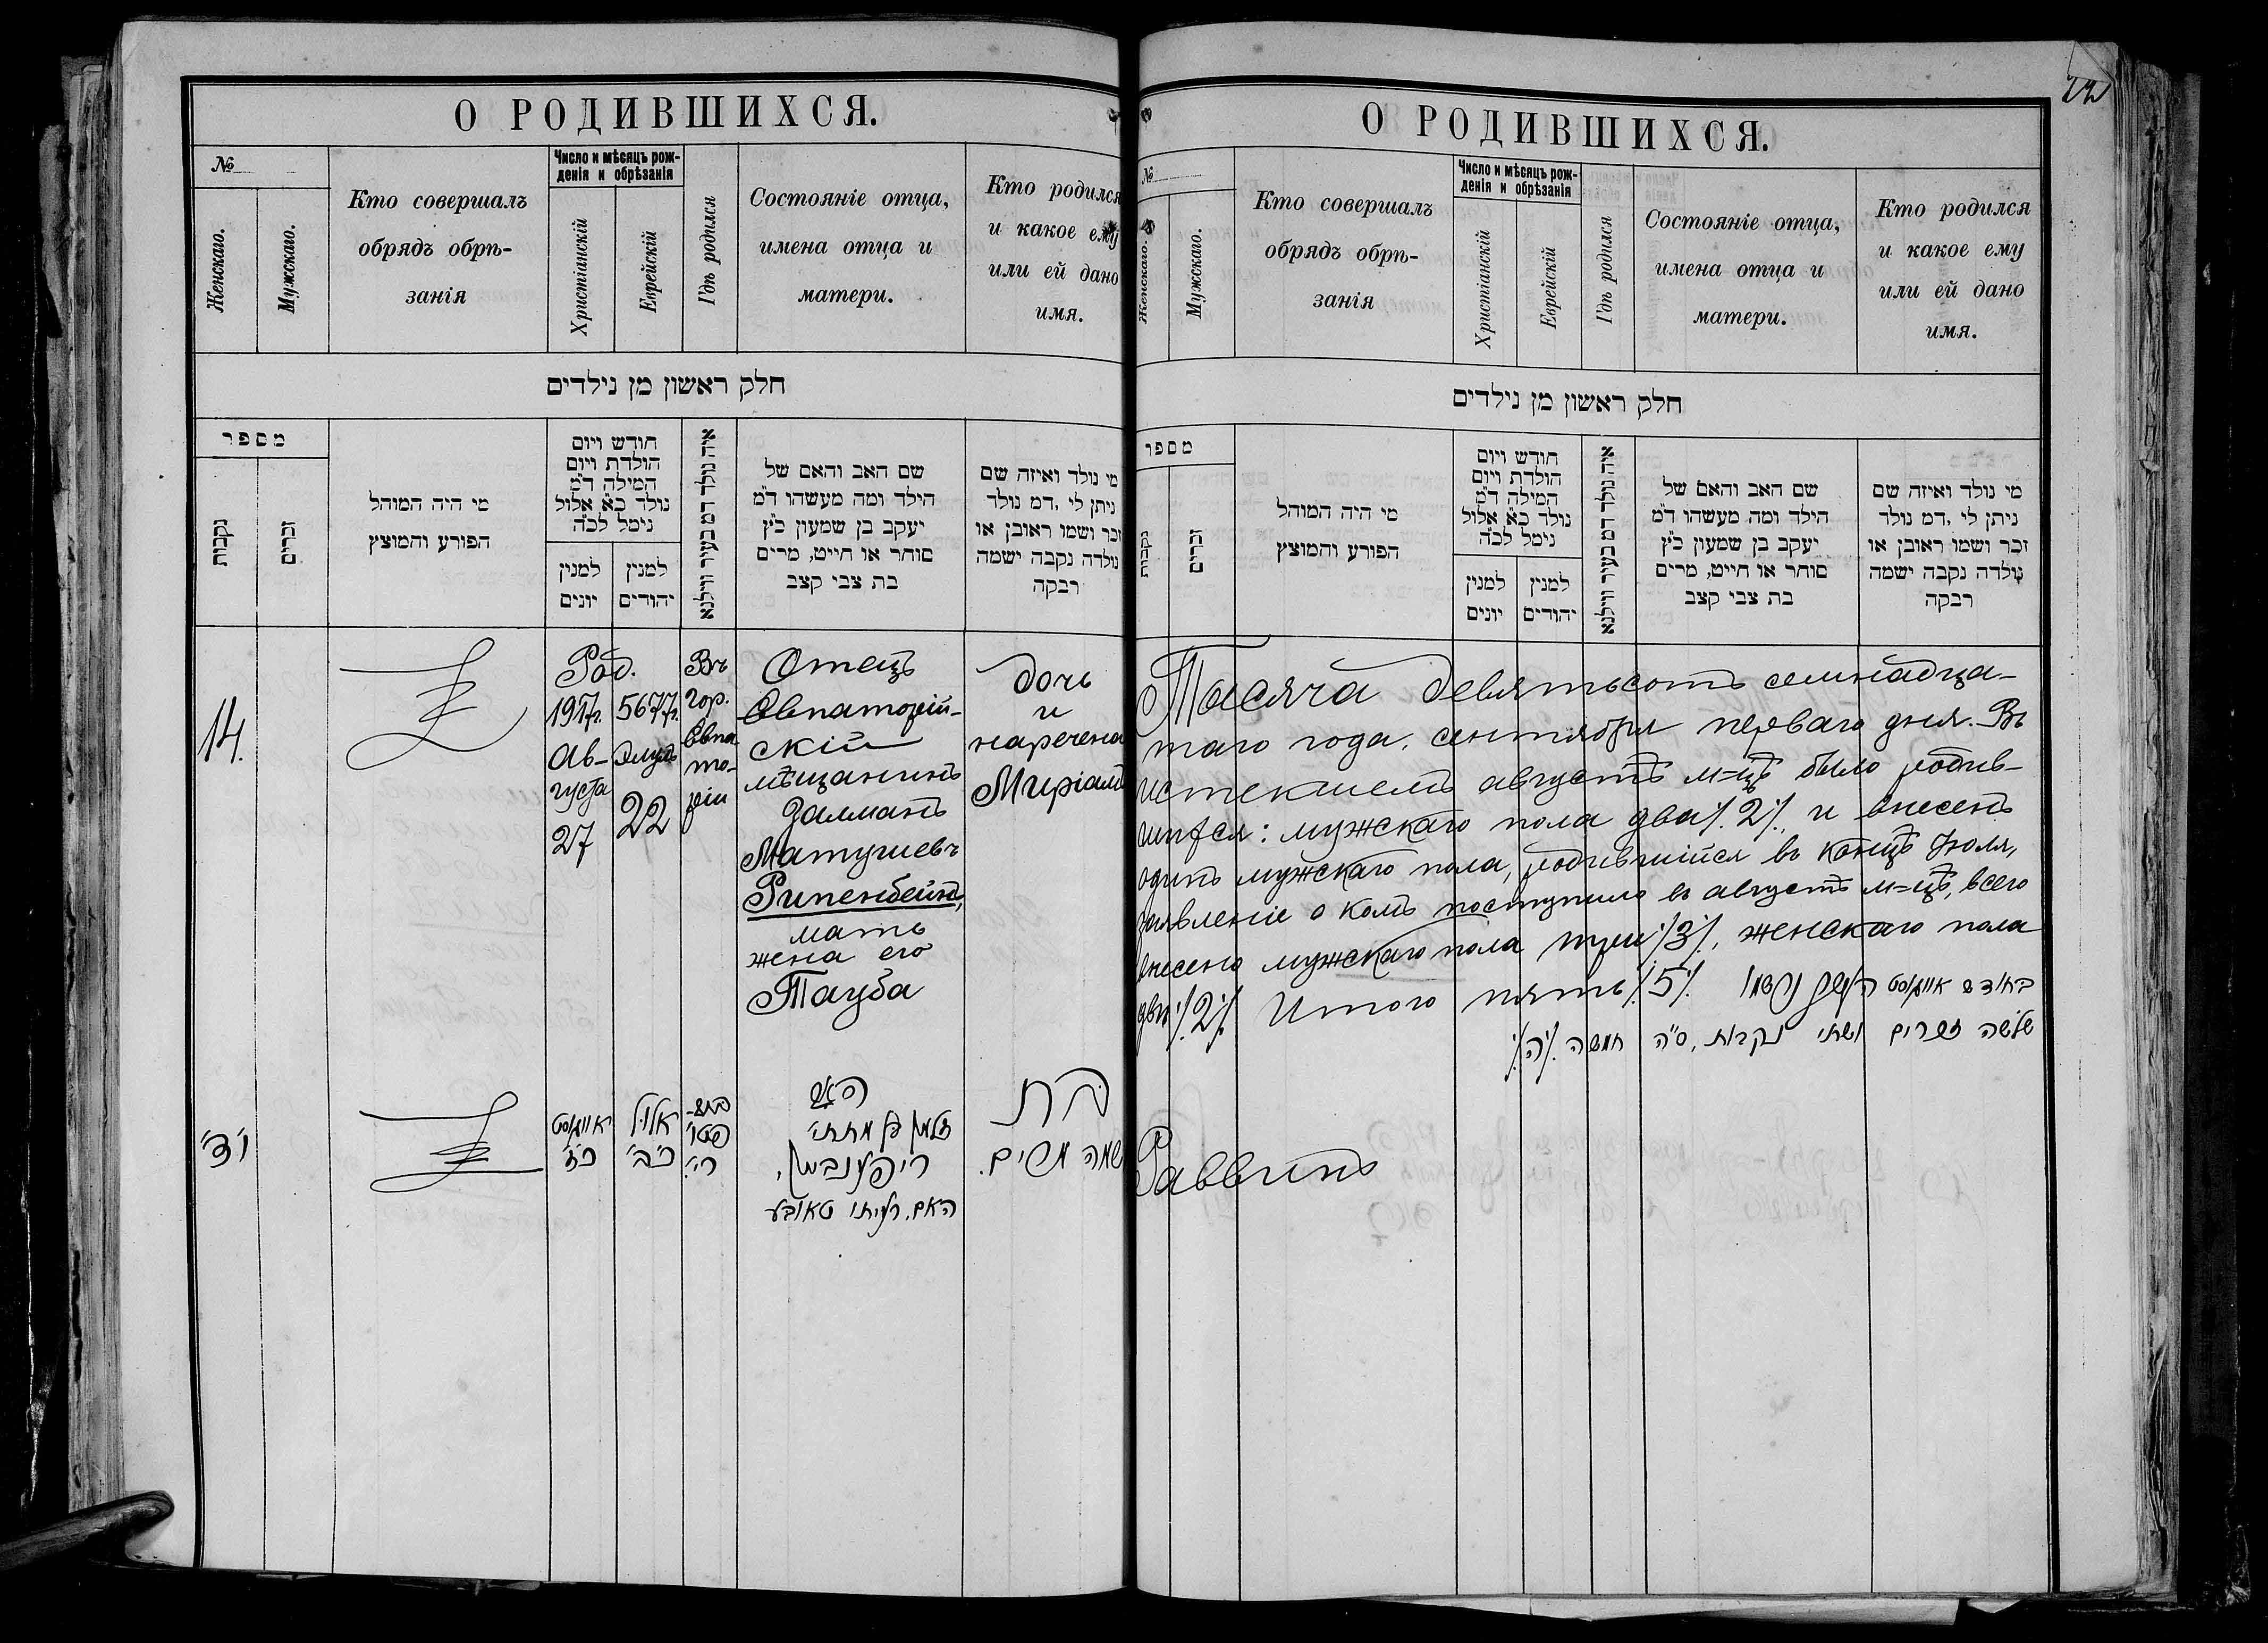 О РОДИВШИХСЯ.
№
Женскаго.
Мужскаго.
Кто совершалъ
обрядъ обрѣ-
занія
Число и мѣсяцъ рож-
денія и обрѣзанія
Христіанскій
Еврейскій
Гдѣ родился
Состояніе отца,
имена отца и
матери.
Кто родился
и какое ему
или ей дано
имя.
חלק ראשון מן נילדים
מספר
נקבות
זכרים
מי היה המוהל
הפורע והמוצץ
חודש ויום
הולדת ויום
המילה ד״מ
נולד כ״א אלול
נימל לכ״ה
למנין
יונים
למנין
יהודים
איה נולד דמ בעיר ווילנא
שם האב והאם של
הילד ומה מעשהו ד״מ
יעקב בן שמעון כ״ץ
סוחר או חייט, מרים
בת צבי קצב
מי נולד ואיזה שם
ניתן לי, דמ נולד
זכר ושמו ראובן או
נולדה נקבה ישמה
רבקה
14.
Род.
1917г.
Ав-
густа
27
5677г.
Элулъ
22
Въ
гор.
Евпа
то-
ріи
Отецъ
Евпаторій-
скій
мѣщанинъ
Залманъ
Матушевъ
Рипенбейнъ,
мать
жена его
Тауба
дочь
и
наречена
Миріамъ
י״ד
אויגוסט
כ״ז
אלול
כ״ב
האב
זלמן בן מתתי׳
ריפענביין,
האם, רעיתו טאובע
בת
שמה מרים.
22
О РОДИВШИХСЯ.
№
Женскаго.
Мужскаго.
Кто совершалъ
обрядъ обрѣ-
занія
Число и мѣсяцъ рож-
денія и обрѣзанія
Христіанскій
Еврейскій
Гдѣ родился
Состояніе отца,
имена отца и
матери.
Кто родился
и какое ему
или ей дано
имя.
חלק ראשון מן נילדים
מספר
נקבות
זכרים
מי היה המוהל
הפורע והמוצץ
חודש ויום
הולדת ויום
המילה ד״מ
נולד כ״א אלול
נימל לכ״ה
למנין
יונים
למנין
יהודים
איה נולד דמ בעיר ווילנא
שם האב והאם של
הילד ומה מעשהו ד״מ
יעקב בן שמעון כ״ץ
סוחר או חייט, מרים
בת צבי קצב
מי נולד ואיזה שם
ניתן לי, דמ נולד
זכר ושמו ראובן או
נולדה נקבה ישמה
רבקה
Тысяча девятьсотъ семнадца-
таго года, сентября перваго дня. Въ
истекшемъ августѣ м=цѣ было родив-
шихся: мужскаго пола два ./.2./. и внесенъ
одинъ мужскаго пола, родившійся въ концѣ Іюля,
заявленіе о комъ поступило въ августѣ м=цѣ, всего
внесено мужскаго пола три ./.3./., женскаго пола
двѣ ./.2./. Итого пять ./.5./.
בחודש אויגוסט
שלשה זכרים ושתי נקבות, ס״ה חמשה ./.ה./.
Раввинъ